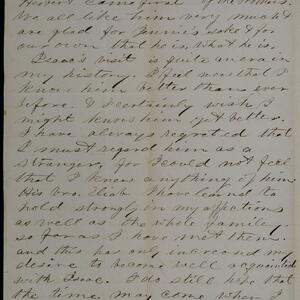 Hebert came first of
We all like him very much &
are glad for Jennie's sake & for
our own that he is, what he is.
Isaac's visit is quite an era in
my history. I feel now that I
know him better than ever
before. & I certainly wish I
might know him yet better.
I have always regretted that
I must regard him as a
stranger, for I could not feel
that I knew anything of him
His bro. Eliab I have learned to
hold strongly in my affections
as well as the whole family
so far as I have met them.
and this has only increased my
desire to become well acquainted
with Isaac. I do still hope that
the time may come when I